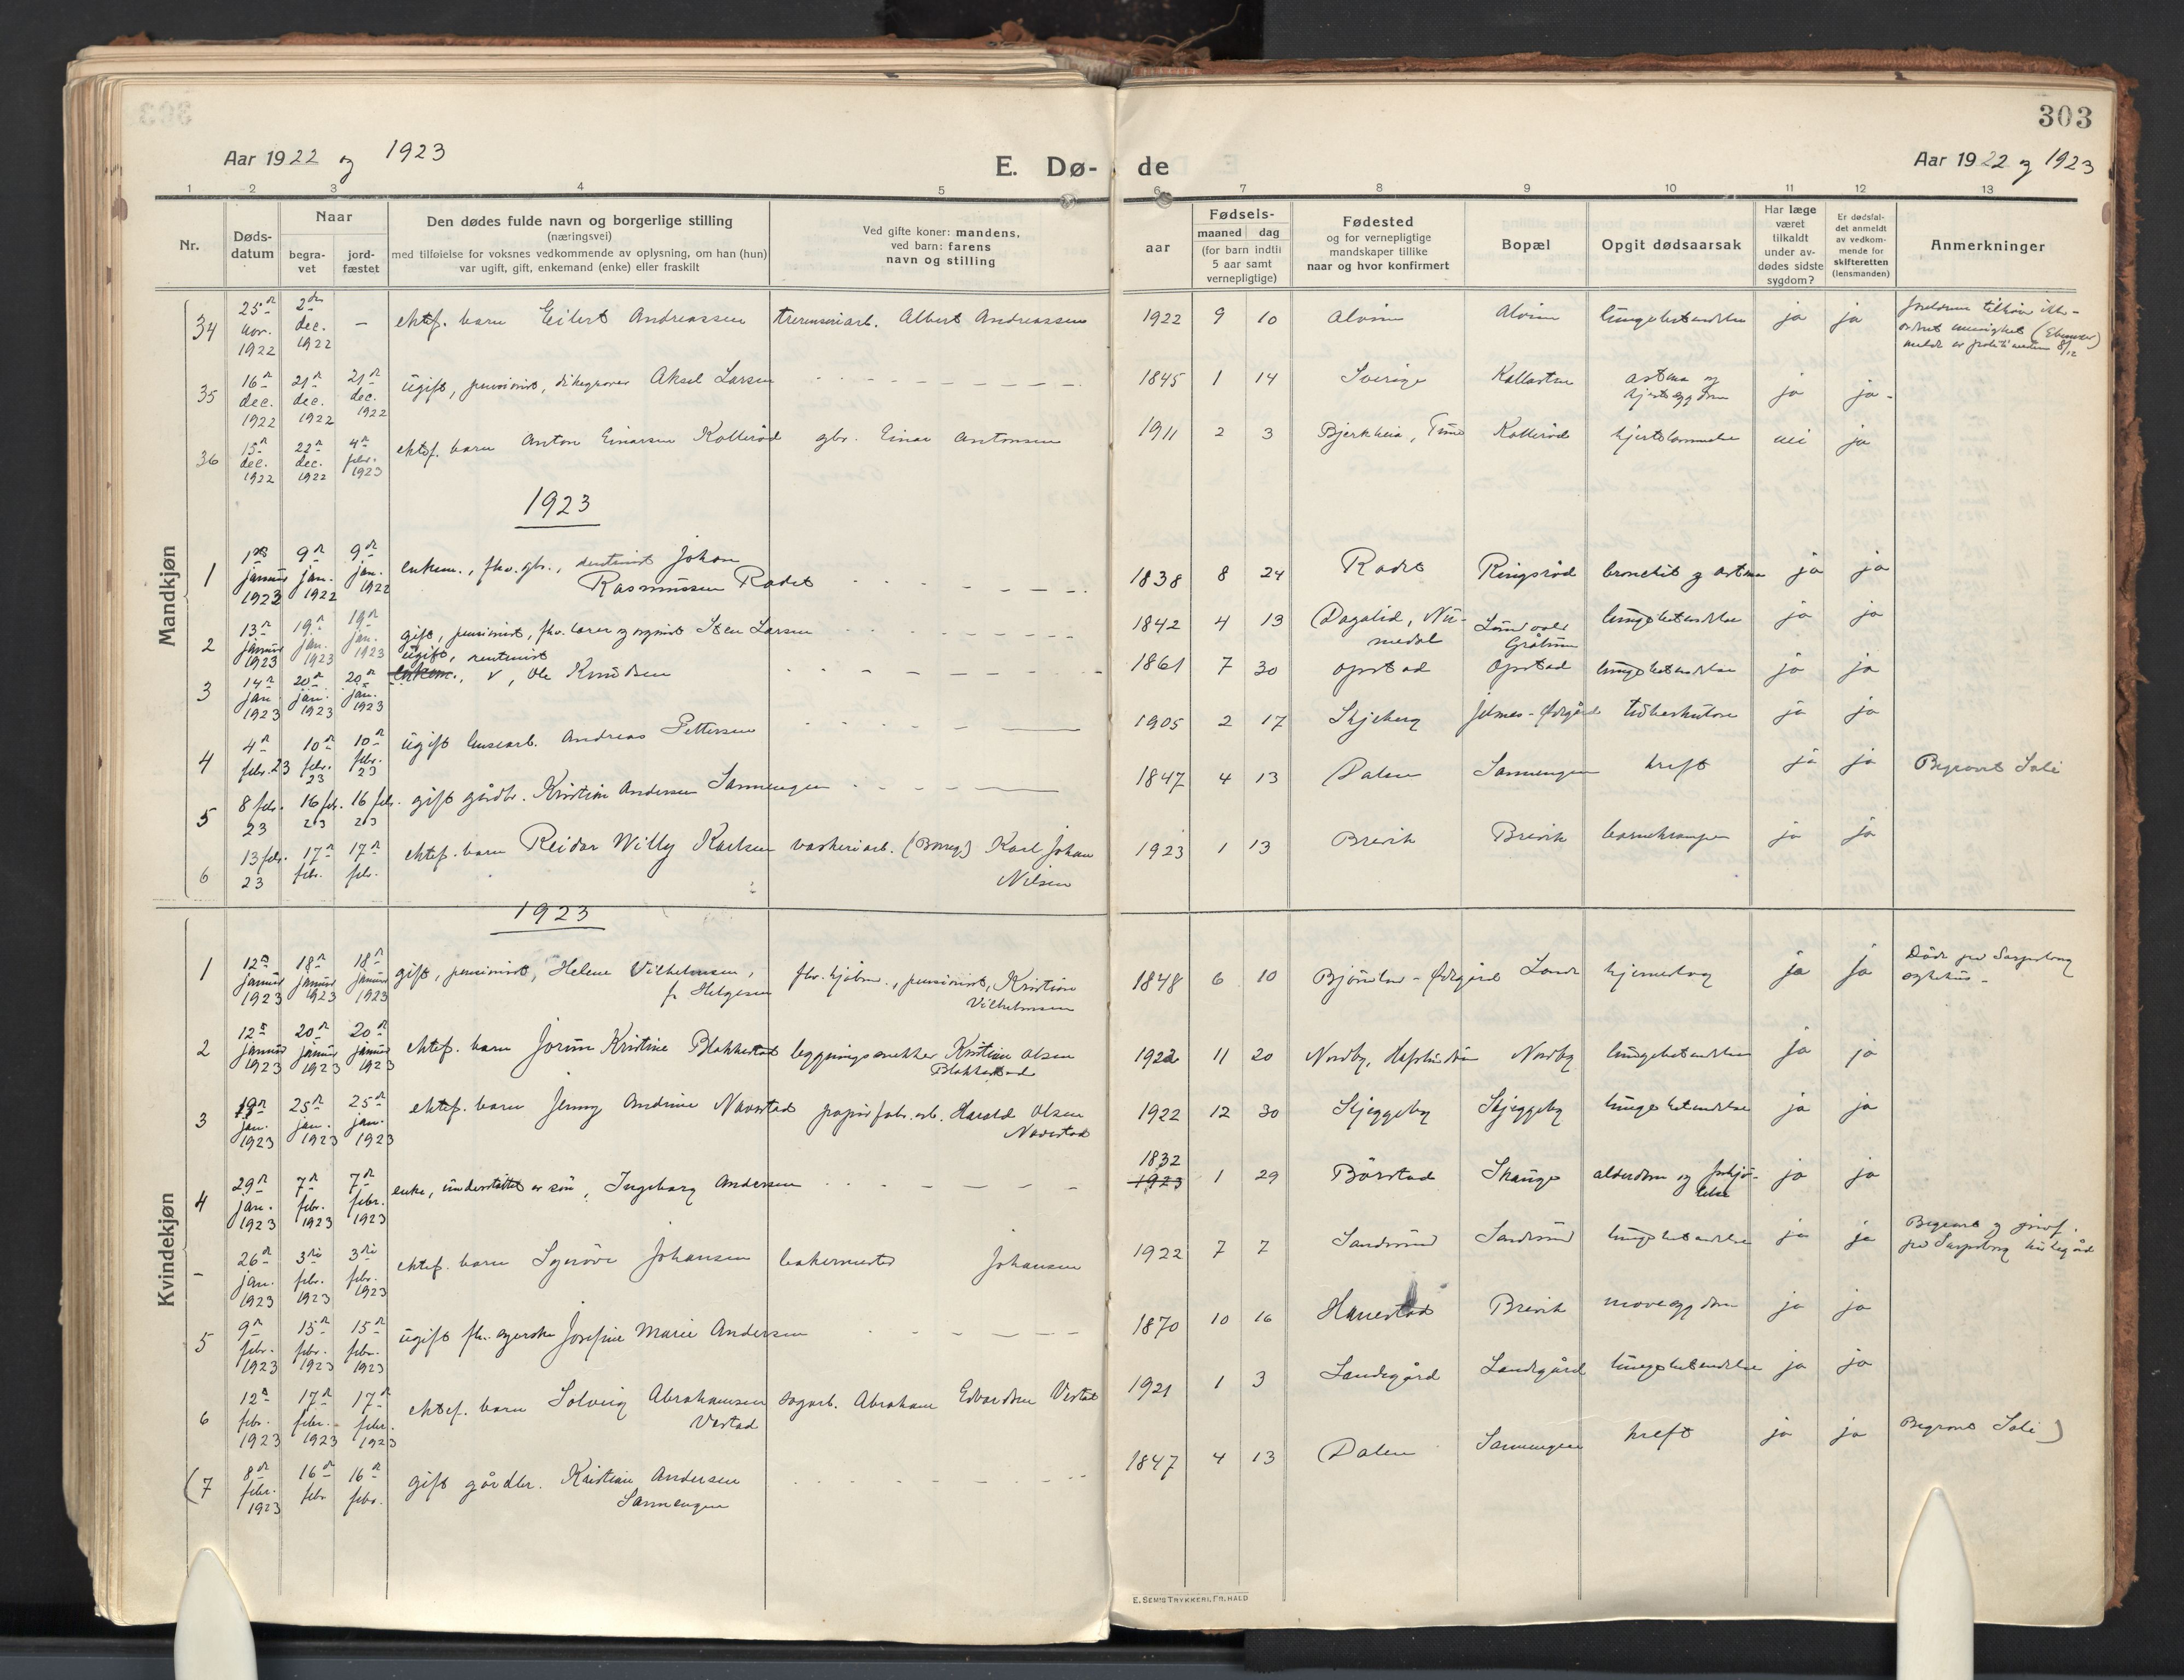 303
Aar 1922 og 1923
E. Dø-de
Aar 1922 og 1923
1 2 3 4 5 6 7 8 9 10 11 12 13
Nr.
Døds-
datum
Naar
begra-
vet
jord-
fæstet
Den dødes fulde navn og borgerlige stilling
(næringsvei)
med tilføielse for voksnes vedkommende av oplysning, om han (hun)
var ugift, gift, enkemand (enke) eller fraskilt
Ved gifte koner: mandens,
ved barn: farens
navn og stilling
Fødsels-
aar
maaned dag
(for barn indtil
5 aar samt
vernepligtige)
Fødested
og for vernepligtige
mandskaper tillike
naar og hvor konfirmert
Bopæl
Opgit dødsaarsak
Har læge
været
tilkaldt
under av-
dødes sidste
sygdom?
Er dødsfal-
det anmeldt
av vedkom-
mende for
skifteretten
(lensmanden)
Anmerkninger
Mandkjøn
34 25de nov. 1922 2den dec. 1922 – ektef. barn Eilert Andreassen Albert Andreassen 1922 9 10 Alvim Alvim lungebetændelse ja ja
35 16de dec. 1922 21de dec. 1922 21de dec. 1922 ugift, pensionist, Aksel Larsen 1845 1 14 Sverige astma og hjertesygdom ja ja
36 15de dec. 1922 22de dec. 1922 4de febr. 1923 ektef. barn Anton Einarsen Kollerød gbr. Einar Antonsen 1911 2 3 Bjerkheia, Tune Kollerød hjertelammelse nei ja
1923
1 1ste januar 1922 9de jan. 1922 9de jan. 1922 enkem., fhv. gbr., Johan
Rasmussen Radet 1838 8 24 Radet Ringsrød bronchit og astma ja ja
2 13de januar 1923 19de jan. 1923 19de jan. 1923 gift, pensionist, fhv. lærer og organist Sten Larsen 1842 4 13 Dagalid, Nu-
medal Grålum lungebetændelse ja ja
3 14de jan. 1923 20de jan. 1923 20de jan. 1923 ugift, rentenist
enkem., Ole Knudsen 1861 7 30 Opstad Opstad lungebetændelse ja ja
4 4de febr. 23 10de febr. 23 10de febr. 23 ugift Andreas Pettersen 1905 2 17 Skjeberg tuberkulose ja ja
5 8 febr. 23 16 febr. 23 16 febr. 23 gift gårdbr. Kristian Andersen Sannengen 1847 4 13 Dalen Sannengen kreft ja ja Begravet Soli
6 13 febr. 23 17de febr. 17de febr. ektef. barn Reidar Willy Karlsen (Borreg.) Karl Johan
Nilsen 1923 1 13 Brevik Brevik barnekramper ja ja
Kvindekjøn
1923
1 12te januar 1923 18de januar 1923 18de januar 1923 gift, pensionist, Helene Vilhelmsen,
f. Helgesen pensionist, Kristian
Vilhelmsen 1848 6 10 Lande hjerneslag ja ja Døde på Sarpsborg
sykehus.
2 12te januar 1923 20de januar 1923 20de januar 1923 ektef. barn Jorun Kristine Blakkestad bygningssnekker Kristian Olsen
Blakkestad 1922 11 20 Nordby, Hafslundsøen Nordby lungebetændelse ja ja
3 19de jan. 1923 25de jan. 1923 25de jan. 1923 ektef. barn Jenny Andrine Navestad papirfabr.arb. Harald Olsen
Navestad 1922 12 30 Skjeggeby Skjeggeby lungebetændelse ja ja
4 29de jan. 1923 7de febr. 1923 7de febr. 1923 enke, understøttet av søn, Ingeborg Andersen 1832
1923 1 29 Børstad alderdom og forkjø-
lelse ja ja
– 26de jan. 1923 3die febr. 1923 3die febr. 1923 ektef. barn Synnøve Johansen bakermester Johansen 1922 7 7 Sandsund Sandsund lungebetændelse ja ja Begravet og jordf.
på Sarpsborg kirkegård
5 9de febr. 1923 15de febr. 1923 15de febr. 1923 ugift fhv. syerske Josefine Marie Andersen 1870 10 16 Hannestad Brevik mavesygdom ja ja
6 12te febr. 1923 17de febr. 1923 17de febr. 1923 ektef. barn Solveig Abrahamsen
Vestad sagarb. Abraham Edvardsen Vestad 1921 1 3 Landegård Landegård lungebetændelse ja ja
(7 8de febr. 1923 16de febr. 16de febr. gift gårdbr. Kristian Andersen
Sannengen 1847 4 13 Dalen Sannengen kreft ja ja Begravet Soli)
E. SEM'S TRYKKERI, FR.HALD